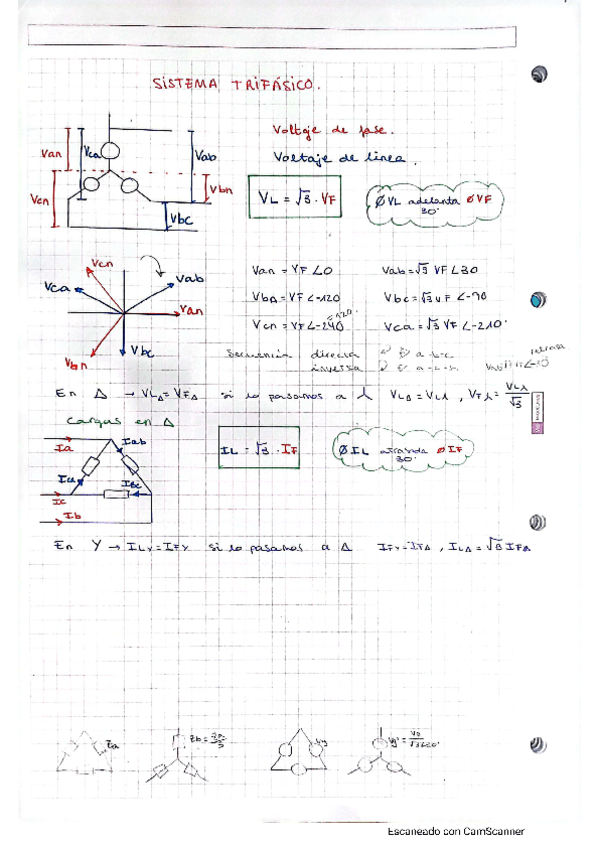 SISTEMA TRIFÁSICO.
Voltaje de fase.
Voltaje de línea.
Van
Vca
Vab
Vcn
Vbn
Vbc
VL = √3 · VF
ØVL adelanta ØVF
30°
Vcn
Vca
Vab
Van
Vbn
Vbc
Van = VF∠0 Vab = √3 VF∠30
Vbn = VF∠-120 Vbc = √3 VF∠-90
Vcn = VF∠-240 Vca = √3 VF∠-210°
Secuencia directa a-b-c
inversa
En Δ → VLΔ = VFΔ si lo pasamos a 人 VLΔ = VL人, VF人 = VL人/√3
Cargas en Δ
Ia
Iab
Ica
Ibc
Ic
Ib
IL = √3 · IF
ØIL atrasada ØIF
30°
En Y → ILY = IFY si lo pasamos a Δ IFY = IFΔ, ILΔ = √3 IFΔ
Escaneado con CamScanner